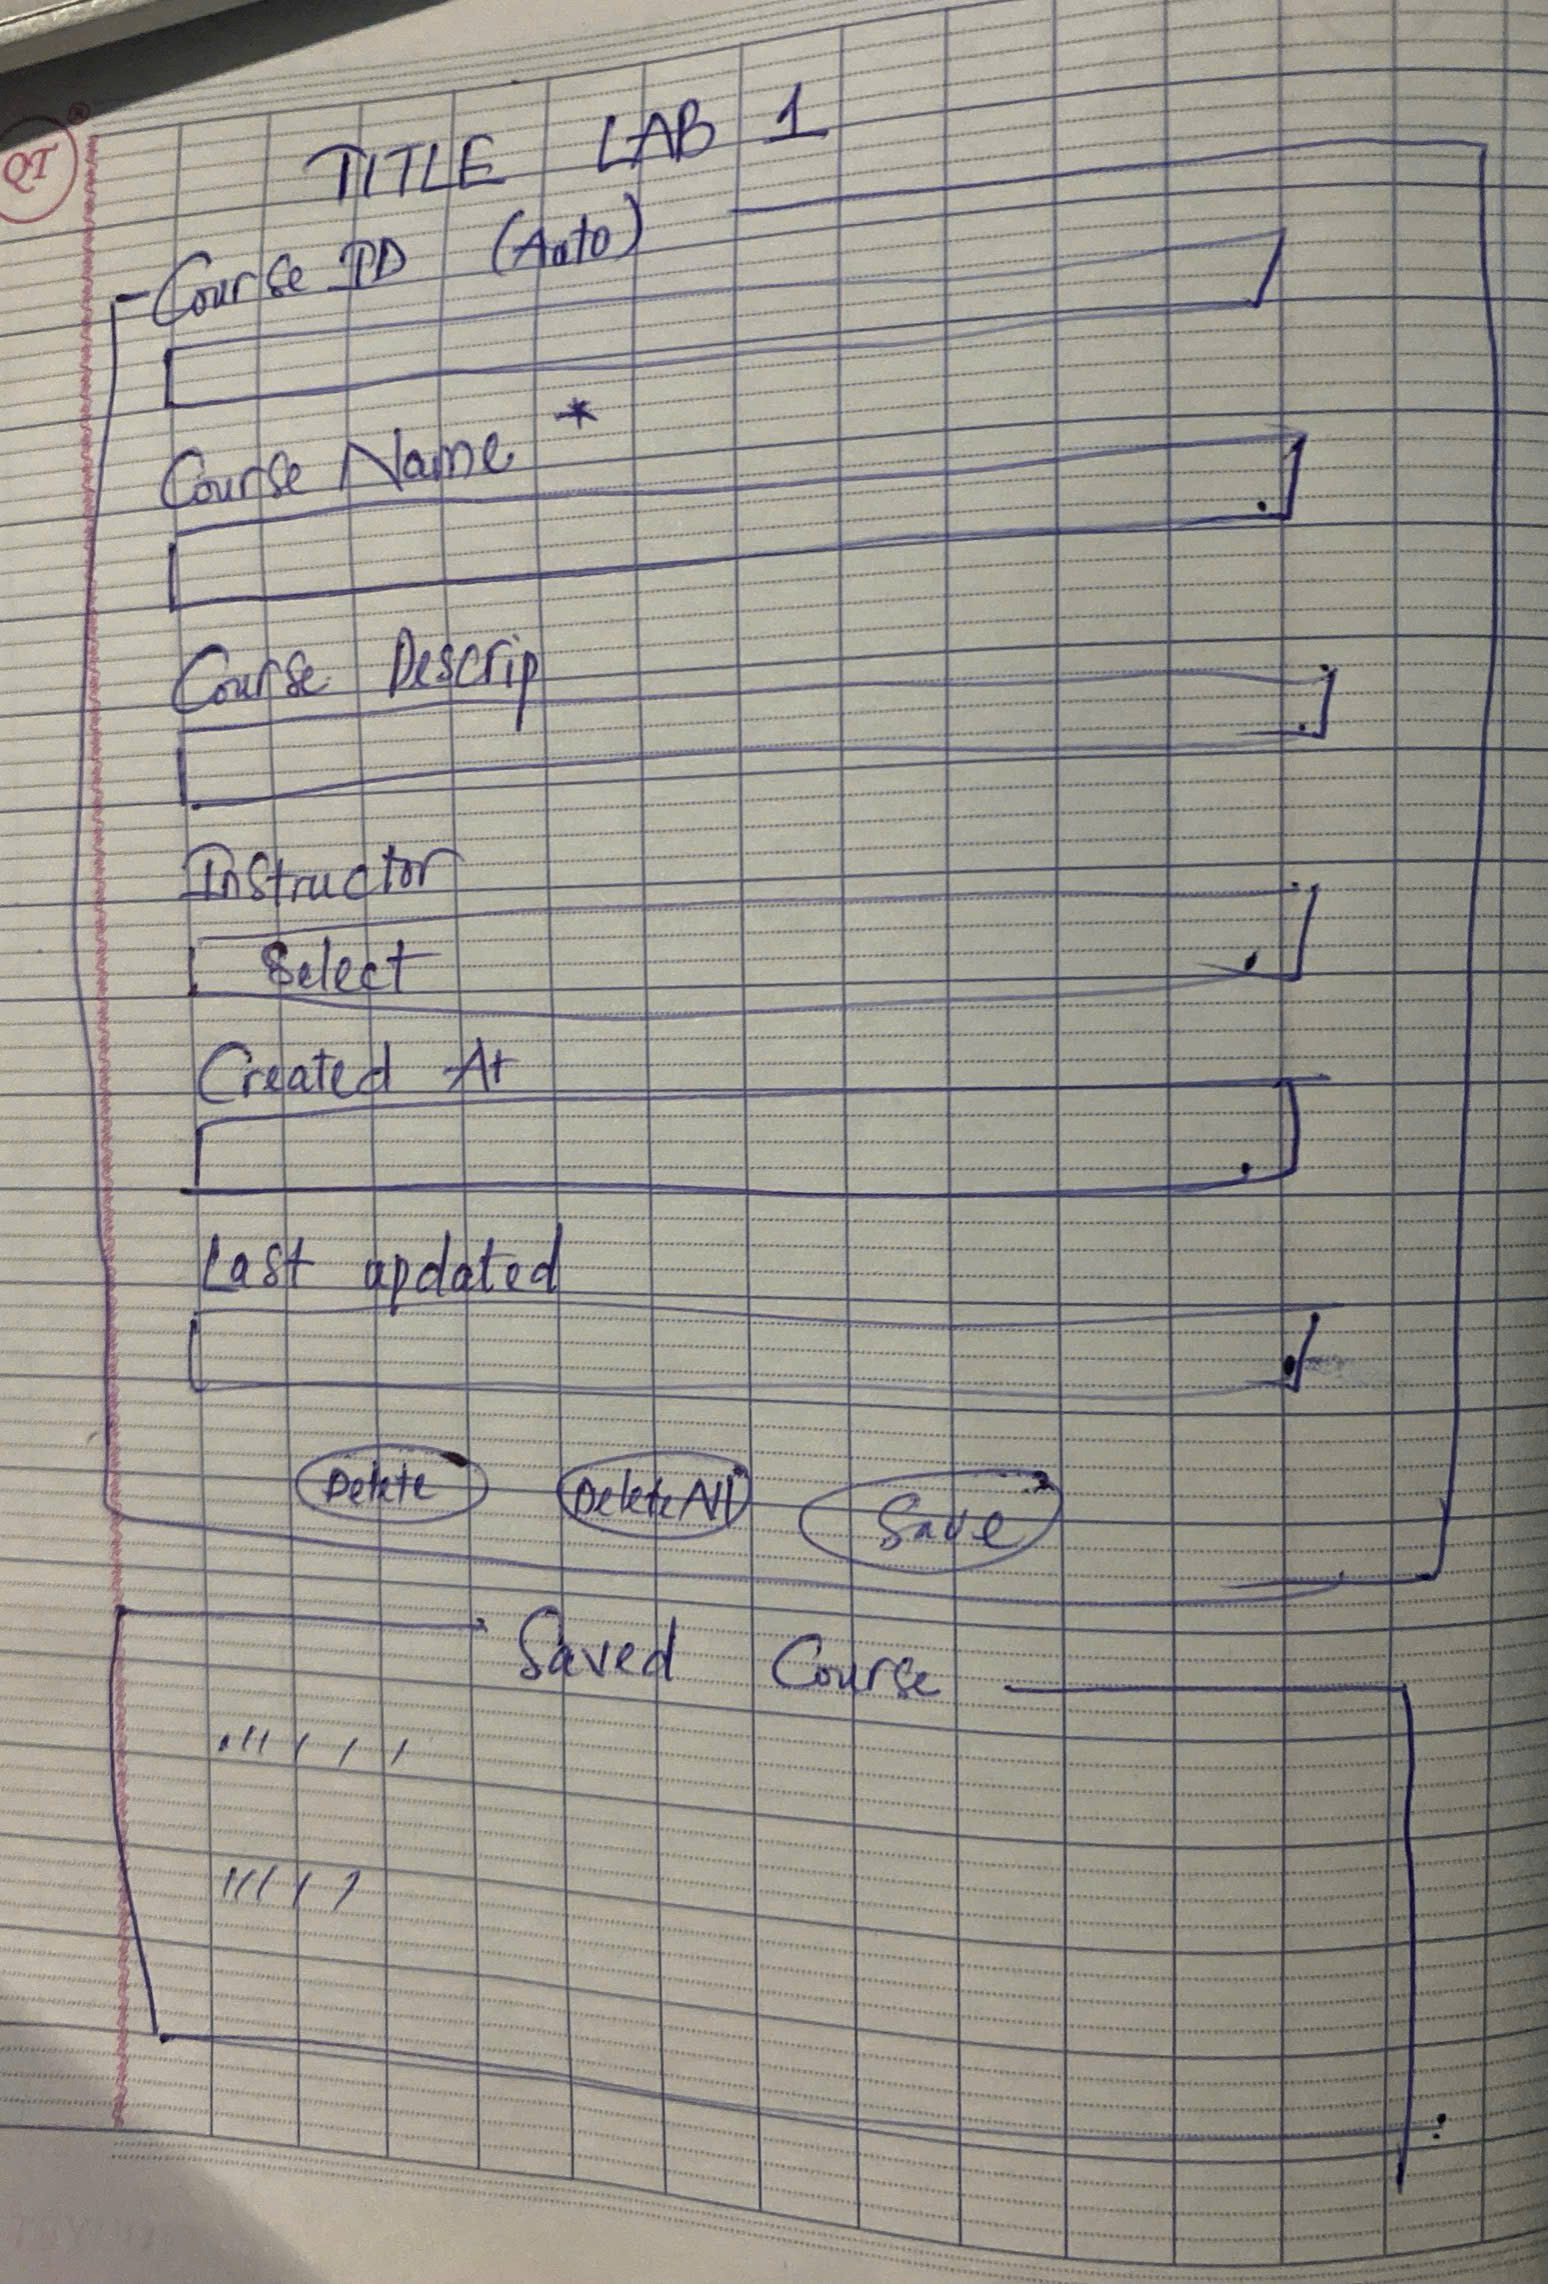 QT
TITLE LAB 1
Course ID (Auto)
Course Name *
Course Descrip
Instructor
Select
Created At
Last updated
Delete Delete All Save
Saved Course